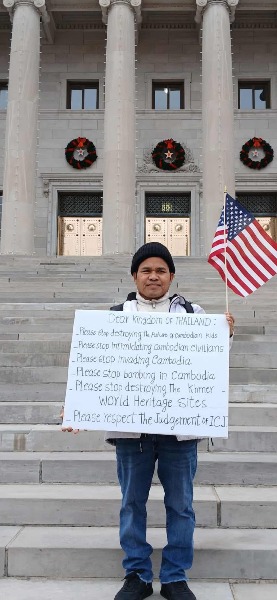 Dear Kingdom OF THAILAND:
_Please Stop destroying The Future of Cambodian Kids
_Please stop Intimidating Cambodian civilians
_Please stop invading Cambodia
_Please stop bombing in Cambodia
_Please stop destroying The Khmer
World Heritage Sites
_Please respect The Judgement of ICJ